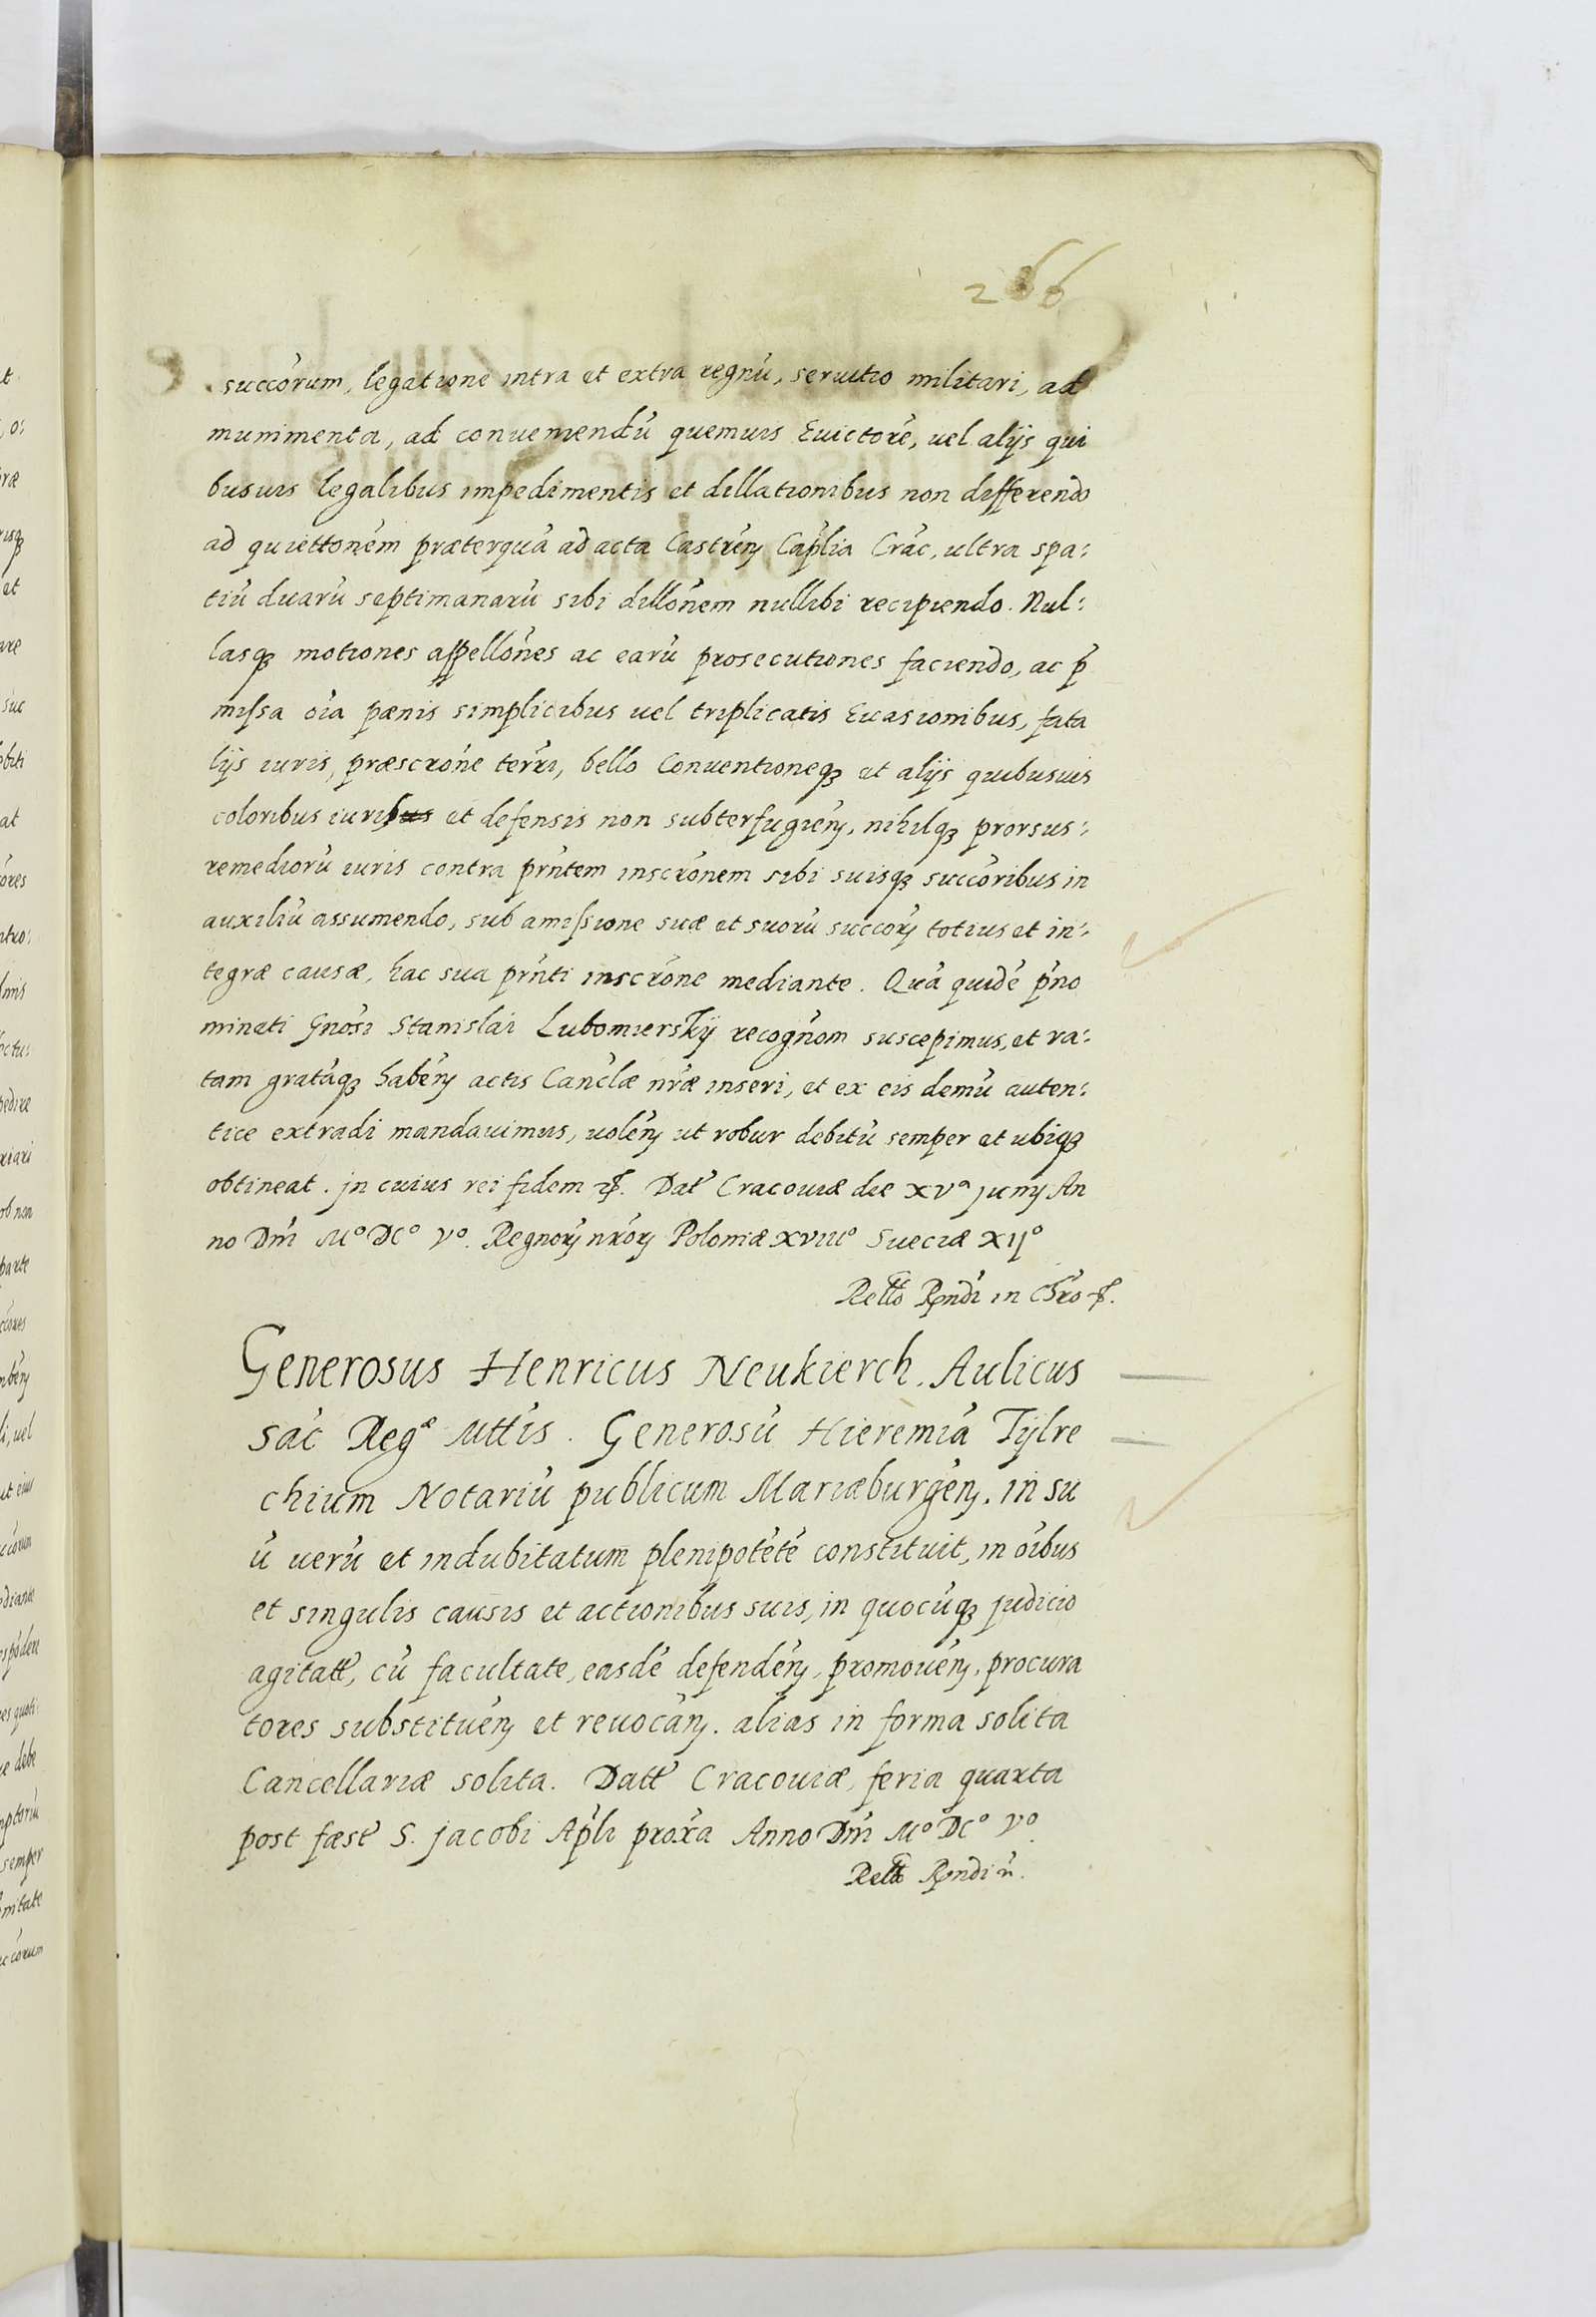 266
succórum, legatione intra et extra regnú, seruitio militari, ad
munimenta, ad conueniendú quemuis Euictoré, uel alijs qui
busuis legalibus impedimentis et dillationibus non differendo
ad quiettónem præterquá ad acta Castrén Cáplia Crác, ultra spa:
tiú duarú septimanarú sibi dillónem nullibi recipiendo. Nul:
lasqȝ motiones appellónes ac earú prosecutiones faciendo, ac p̃
missa óia pænis simplicibus uel triplicatis Euasionibus, fata
lijs iuris, præscróne térri, bello Conuentioneqȝ et alijs quibusuis
coloribus iuribus et defensis non subterfugién, nihilqȝ prorsus:
remediorú iuris contra prńtem inscrónem sibi suisqȝ succóribus in
auxiliú assumendo, sub amissione suæ et suorú succorȝ totius et in:
tegræ causæ, hac sua prńti inscróne mediante. Quá quidé pńo
minati Gnósi Stanislai Lubomierskij recognóm suscepimus, et ra:
tam gratáqȝ habén actis Canclæ nŕæ inseri, et ex eis demú auten:
tice extradi mandauimus, uolén ut robur debitú semper et ubiqȝ
obtineat. jn cuius rei fidem ꝛc. Dat́ Cracouiæ die xvᵃ junij An
no Dm̃i Mº DCº Vº. Regnorȝ nrórȝ Poloniæ xviiiº Sueciæ XIJº
Relló Rńdi in Chró ꝛc.
Generosus Henricus Neukierch. Aulicus
Sác Regᵉ Mttis. Generosú Hieremiá Tÿlre
chium Notariú publicum Mariæburgén. in su
ú uerú et indubitatum plenipotété constituit, in óibus
et singulis causis et actionibus suis, in quocúqȝ judicio
agitatt́, cú facultate, easdé defendén, promouén, procura
tores substituén et reuocán. alias in forma solita
Cancellariæ solita. Datt́ Cracouiæ, feria quarta
post fæst́ S. jacobi Apĺi próxa Anno Dm̃i Mº DCº Vº.
Relló Rńdi ń.